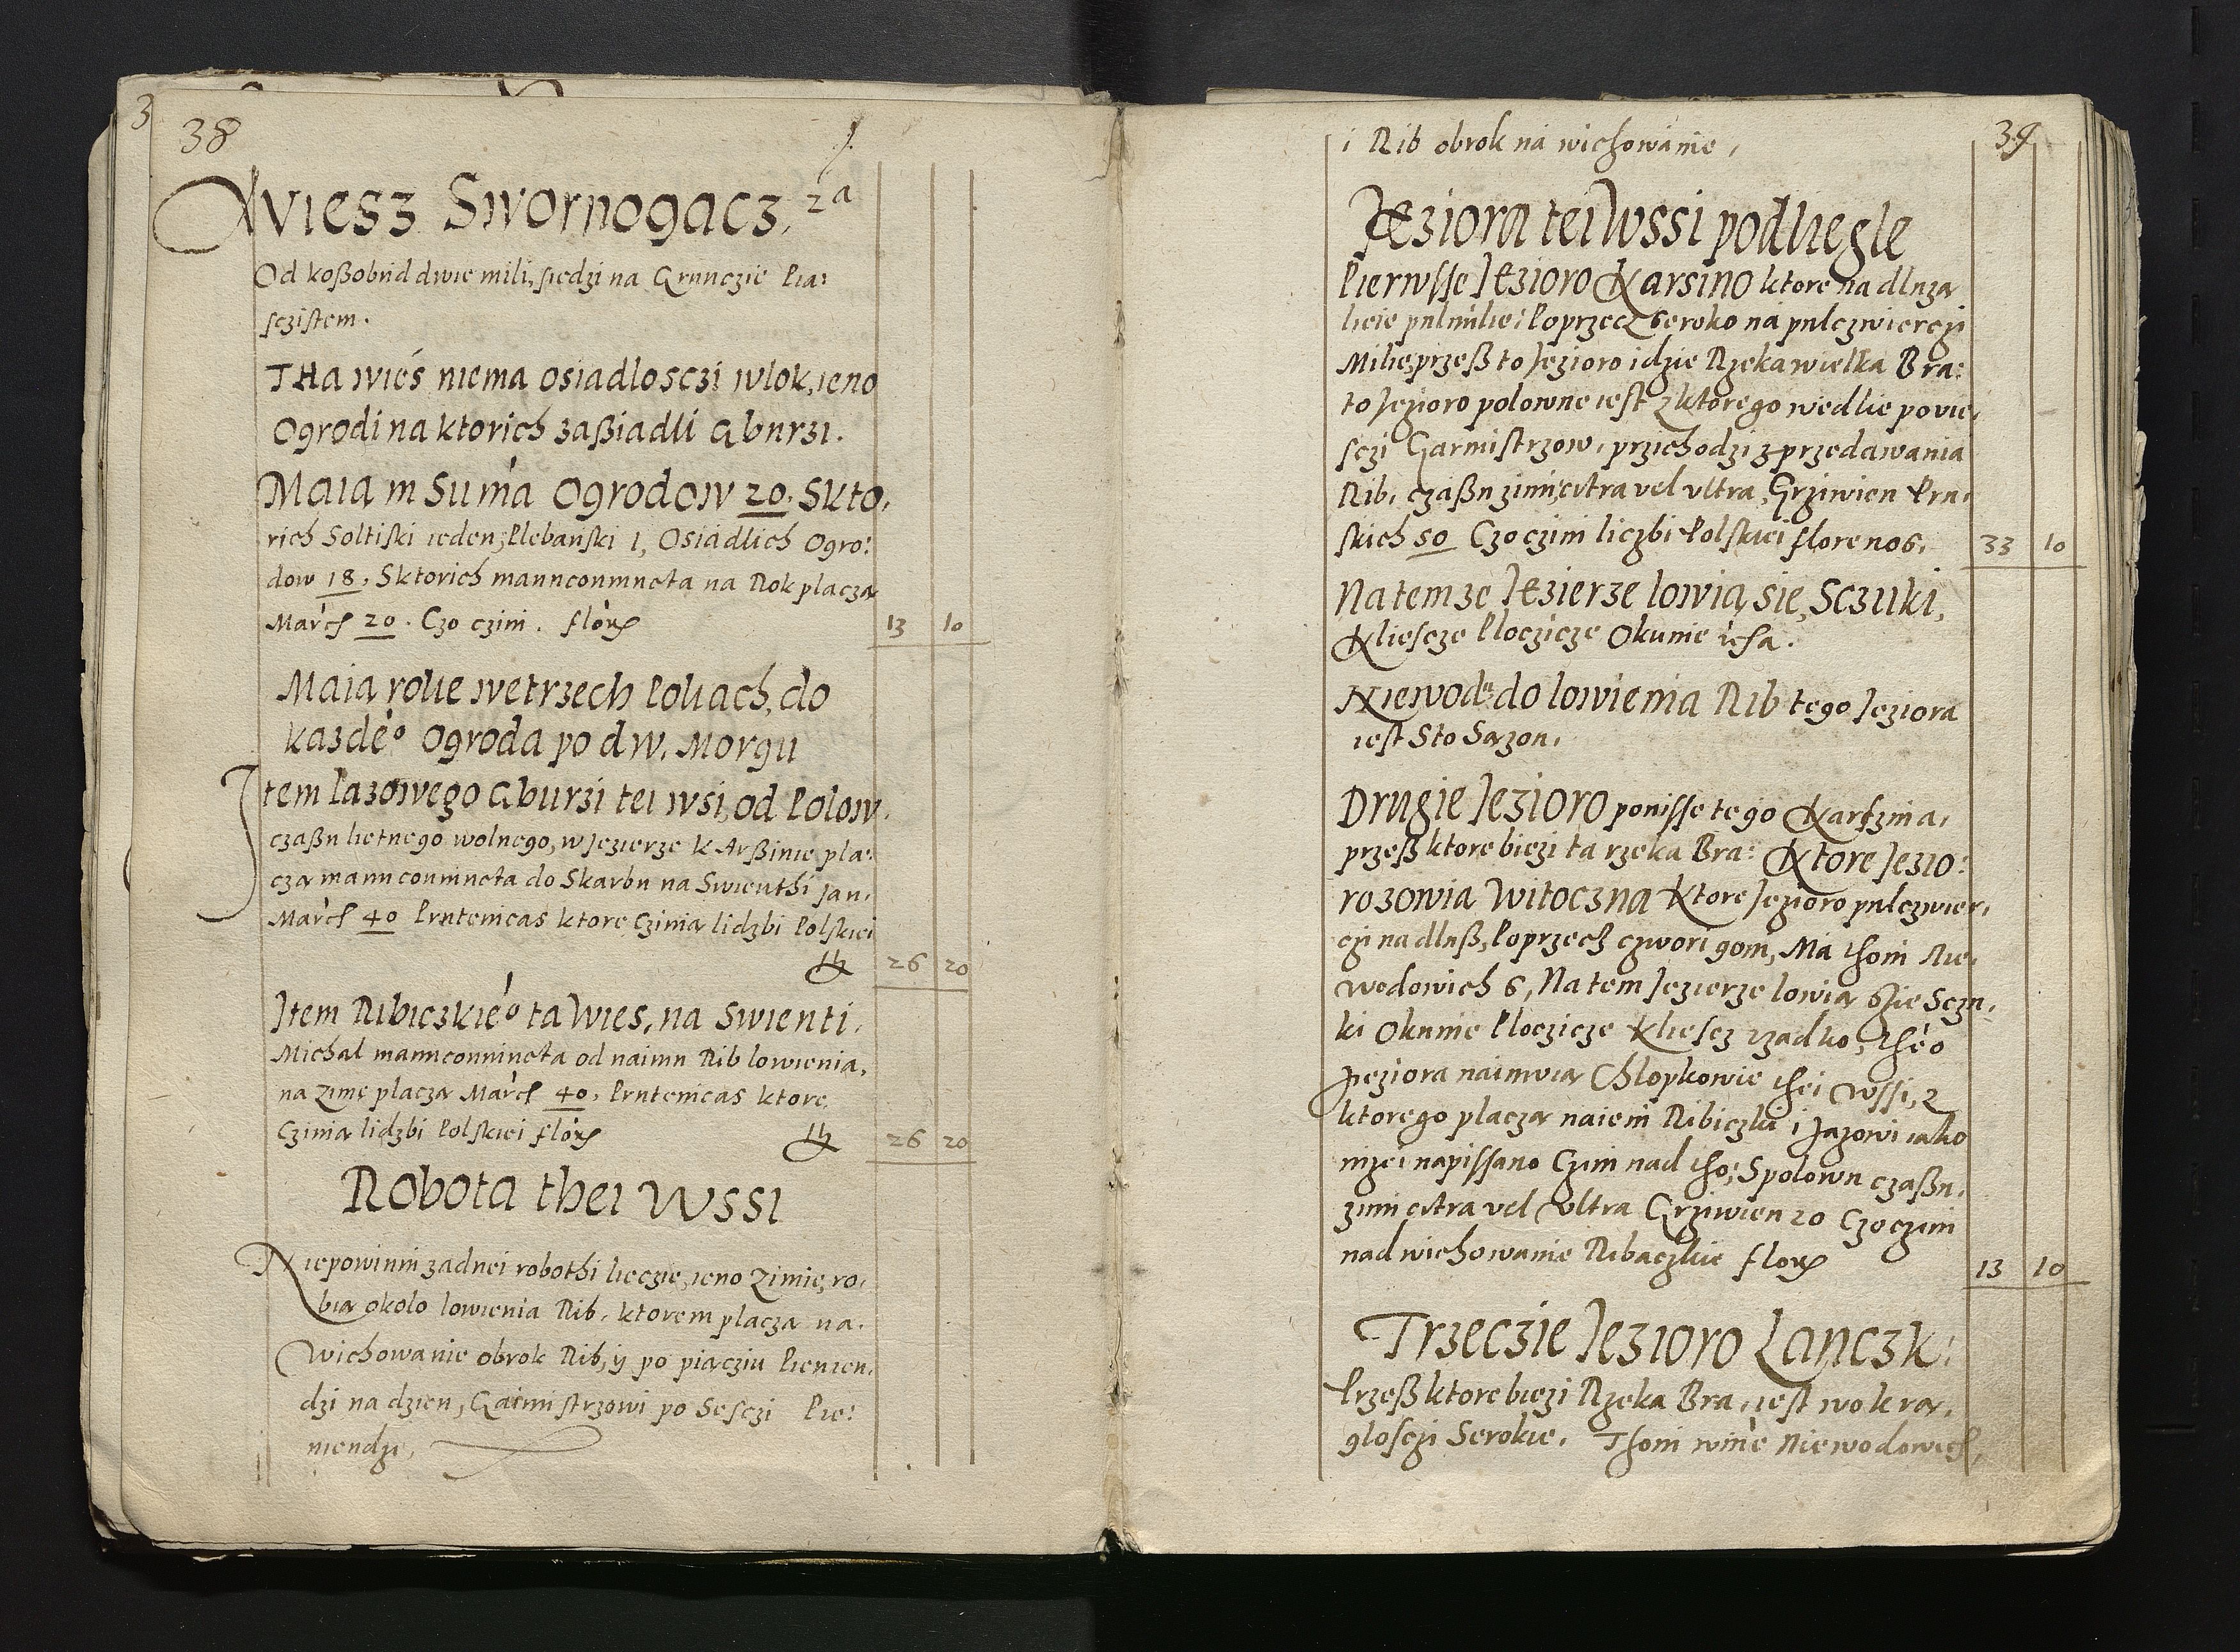 38
Wiesz Swornogacz, 2a
Od koßobud dwie mili, siedzi na Grunczie Pia:
sczistem.
THa wieś niema osiadlosczi wlok, ieno
Ogrodi na ktorich zaßiadli Gburzi.
Maią in Suma Ogrodow 20. Skto,
rich Soltiski ieden, Plebanski 1, Osiadlich Ogro:
dow 18, Sktorich manuconiuncta na Rok placzą
March 20. Czo czini. flor 13 10
Maią rolie wetrzech Poliach, do
kazde° Ogroda po dw. Morgu
Item Iazowego Gburzi tei wsi, od Polow
czaßu lietnego wolnego, w Jezierze kArßinie pla:
czą manu coniuncta do Skarbu na Swienthi Jan,
March 40 Prutenicas ktore Czinią lidzbi Polskiei
26 20
Item Ribiczkie° ta Wies, na Swienti,
Michal manuconiuncta od naimu Rib lowienia,
na Zimę placzą March 40, Prutenicas ktore
Czinią lidzbi Polskiei flor 26 20
Robota thei Wssi
Niepowinni zadnei robothi lieczie, ieno Zimie, ro,
bią okolo lowienia Rib, ktorem placzą na
Wichowanie obrok Rib, ij po piącziu Pienien,
dzi na dzien, Garmistrzowi po Sesczi Pie:
niendzi,
39
i Rib obrok na wichowanie,
Jeziora tei Wssi podliegle
Pierwsse Jezioro Karsino ktore na dluzą
lieie pulmilie: Poprzecz Seroko na pulczwierczi
Milie, przeß to Jezioro idzie Rzeka wielka Bra:
to Jezioro polowne iest z ktorego wedlie powie,
sczi Garmistrzow, przichodzi z przedawania
Rib, czaßu zimi, citra vel vltra, Grziwien Pru,
skich 50 Czo czini liczbi Polskiei florenos, 33 10
Na temze Jezierze lowią, się, Sczuki,
Kliescze Ploczicze Okunie
Niewod do lowienia Rib tego Jeziora
iest Sto Sązon,
Drugie Jezioro ponisse tego Karszina,
przeß ktore biezi ta rzeka Bra: Ktore Jezio:
ro zowią Witoczna Ktore Jezioro pulczwier,
czi na dluß, Poprzecz czwori gom, Ma thoni Nie,
wodowich 6, Na tem Jezierze lowią Sie Sczu,
ki Okunie Ploczicze Kliescz rzadko, the°
Jeziora naimuią Chlopkowie thei Wssi, z
ktorego placzą naiem Ribiczki i Jazowi iako
nizei napissano Czini nad tho, Spolowu czaßu,
zimi citra vel Vltra Grziwien 20 Czo czini
nad wichowanie Ribaczkie flor 13 10
Trzeczie Jezioro Lanczk:
Przeß ktore biezi Rzeka Bra, iest wokrą,
glosczi Serokie. Thoni Niewodowich,